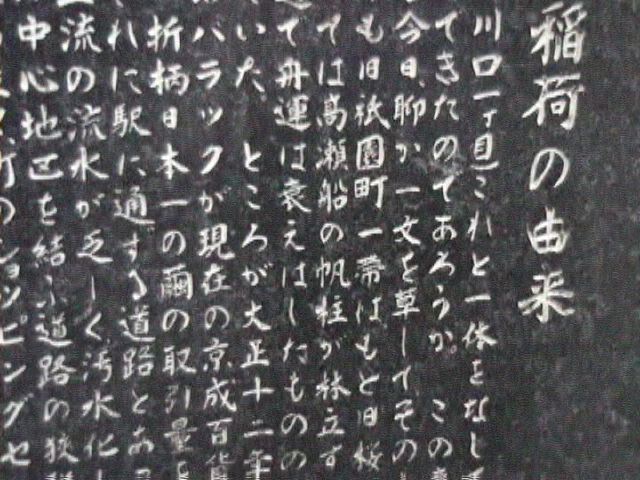 稲荷の由来
川口一丁目これと一体をなし
てきたのであろうか。この
今日、聊か一文を草してその
も旧祇園町一帯はもと旧桜
では高瀬船の帆柱が林立す
て舟運は衰えはしたものの
いた。ところが大正十二年
バラックが現在の京成百貨
折柄日本一の繭の取引量を
れに駅に通する道路とあ
流の流水が乏しく汚水化し
中心地区を結ぶ道路の狭
町のショッピングセ